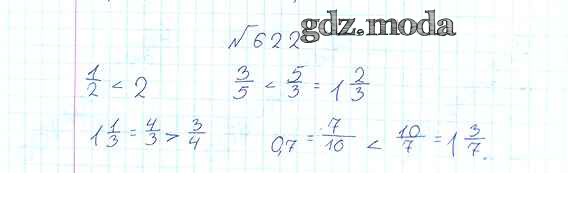 №622 gdz.moda
1/2 < 2   3/5 < 5/3 = 1 2/3
1 1/3 = 4/3 > 3/4   0,7 = 7/10 < 10/7 = 1 3/7.